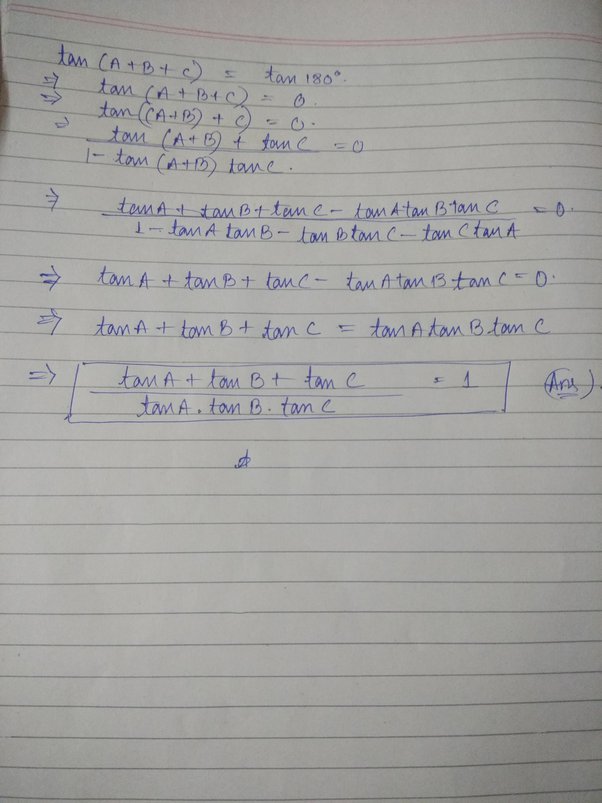 tan (A+B+C) = tan 180°.
⇒ tan (A+B+C) = 0.
⇒ tan((A+B) + C) = 0.
⇒ tan (A+B) + tan C = 0
1 - tan (A+B) tan C.
⇒ tan A + tan B + tan C - tan A tan B tan C = 0.
1 - tan A tan B - tan B tan C - tan C tan A
⇒ tan A + tan B + tan C - tan A tan B tan C = 0.
⇒ tan A + tan B + tan C = tan A tan B tan C
⇒ tan A + tan B + tan C = 1 (Ans).
tan A . tan B . tan C